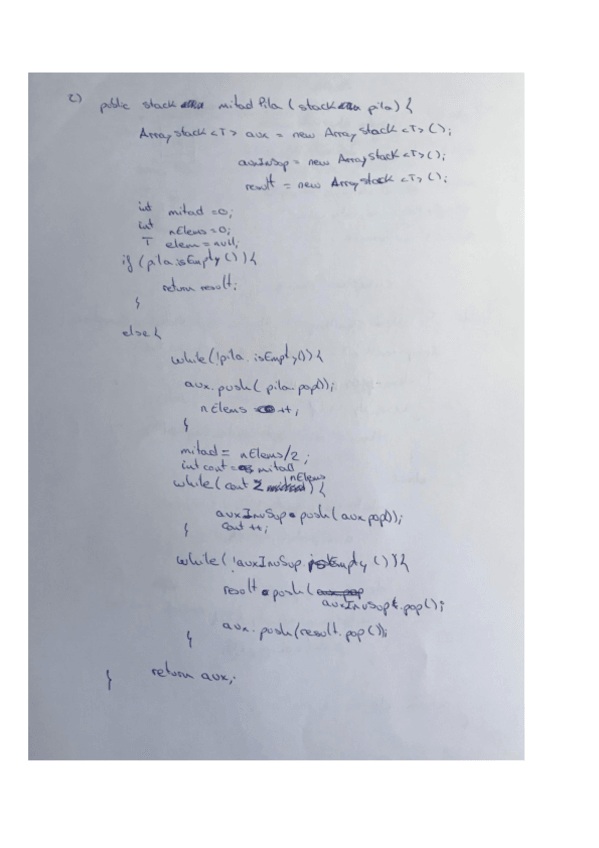 c) public stack mitadPila (stack pila) {
ArrayStack <T> aux = new ArrayStack <T> ();
auxInvSup = new ArrayStack <T> ();
result = new ArrayStack <T> ();
int mitad = 0;
int nElems = 0;
T elem = null;
if (pila.isEmpty ()) {
return result;
}
else {
while (!pila.isEmpty()) {
aux.push (pila.pop());
nElems ++;
}
mitad = nElems/2;
int cont = mitad
while (cont nElems) {
auxInvSup.push (aux.pop());
cont ++;
}
while (!auxInvSup.isEmpty ()) {
result.push (
auxInvSup.pop();
aux.push (result.pop());
}
} return aux;